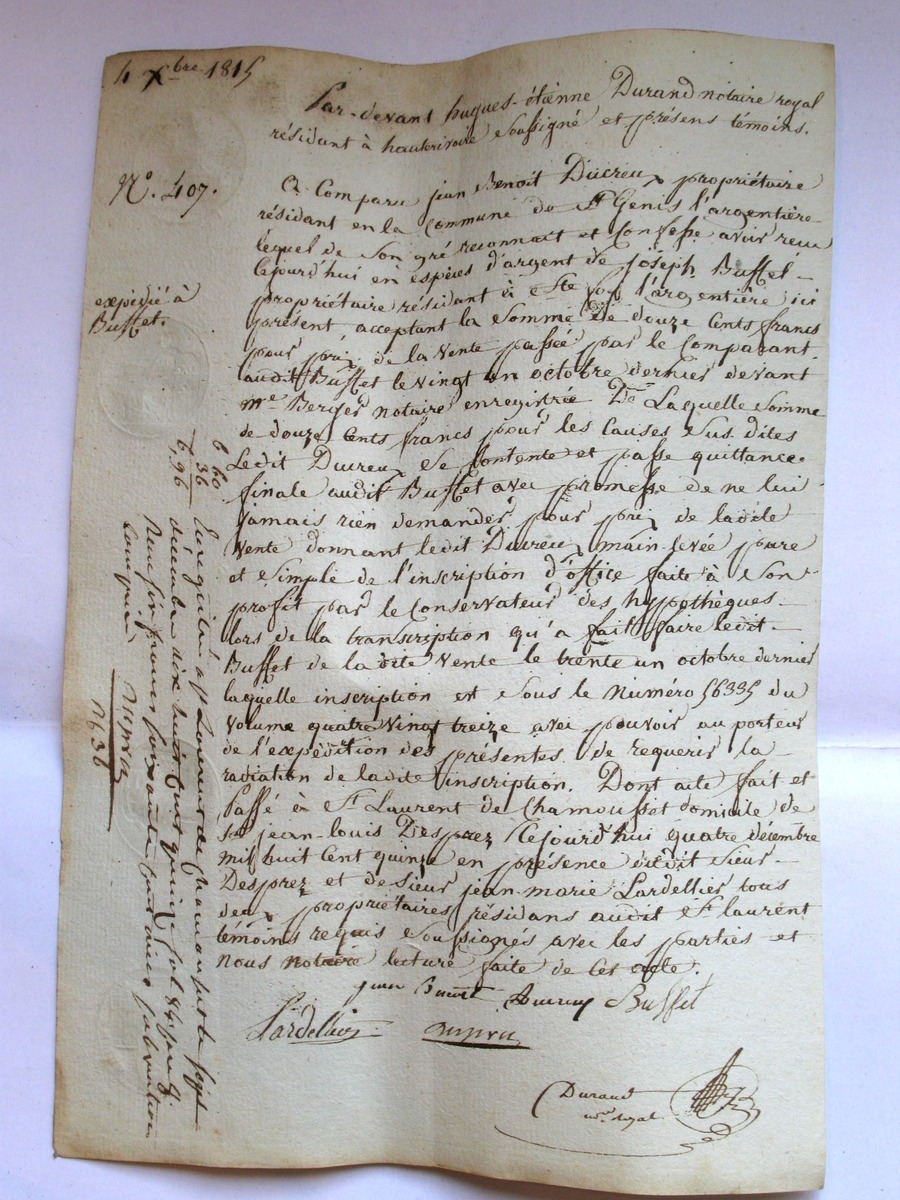 4 Xbre 1815
Par-devant hugues-étienne Durand notaire royal
résidant à hauterivoire Soussigné et présens témoins.
N°. 407.
A Comparu jean Benoit Ducreux propriétaire
résidant en la Commune de St Genis l'argentière
lequel de Son gré reconnait et Confesse avoir reçu
Cejourd'hui en espèces d'argent de joseph Buffet
propriétaire résidant à Ste foy l'argentière ici
présent acceptant la Somme de douze Cents francs
expédié à
Buffet.
pour prix de la vente passée par le Comparant
audit Buffet le vingt un octobre dernier devant
me Berger notaire enregistrée Laquelle Somme
de douze Cents francs pour les Causes Sus dites
Ledit Ducreux Se Contente et passe quittance
finale audit Buffet avec promesse de ne lui
jamais rien demander pour prix de ladite
vente donnant ledit Ducreux main-levée pure
et Simple de l'inscription d'office faite à Son
profit par le Conservateur des hypothèques
lors de la transcription qu'a fait faire ledit
Buffet de la dite vente le trente un octobre dernier
laquelle inscription est Sous le Numéro 56335 du
volume quatre vingt treize avec pouvoir au porteur
de l'expédition des présentes de requerir la
radiation de ladite inscription. Dont acte fait et
Passé à St Laurent de Chamousset domicile de
Sr jean-louis Desprez Cejourd'hui quatre décembre
mil huit Cent quinze en présence dudit Sieur
Desprez et de Sieur jean-marie Lardellier tous
deux propriétaires résidans audit St laurent
témoins requis Soussignés avec les parties et
nous notaire lecture faite de Cet acte.
jean Benoit Ducreux Buffet
Lardellier Desprez
Durand
nre royal
6 60
36
6,96
Enregistré à St Laurent de chamousset le Sept
décembre dix huit cent quinze fol. 84
Reçu Six francs soixante centimes subvention
Comprise
Desprez